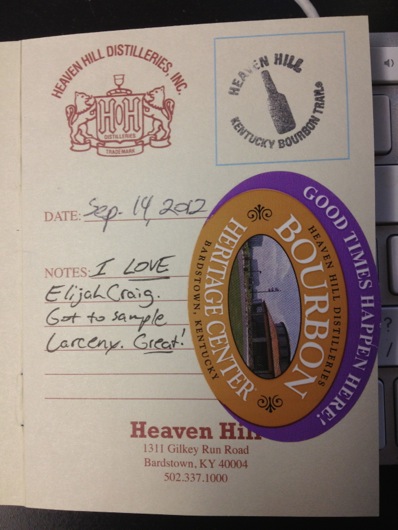 HEAVEN HILL DISTILLERIES, INC.
HH
DISTILLERIES
TRADE MARK
HEAVEN HILL
KENTUCKY BOURBON TRAIL®
DATE: Sep. 14, 2012
NOTES: I LOVE
Elijah Craig.
Got to sample
Larceny. Great!
GOOD TIMES HAPPEN HERE!
HEAVEN HILL DISTILLERIES
BOURBON
HERITAGE CENTER
BARDSTOWN, KENTUCKY
Heaven Hill
1311 Gilkey Run Road
Bardstown, KY 40004
502.337.1000